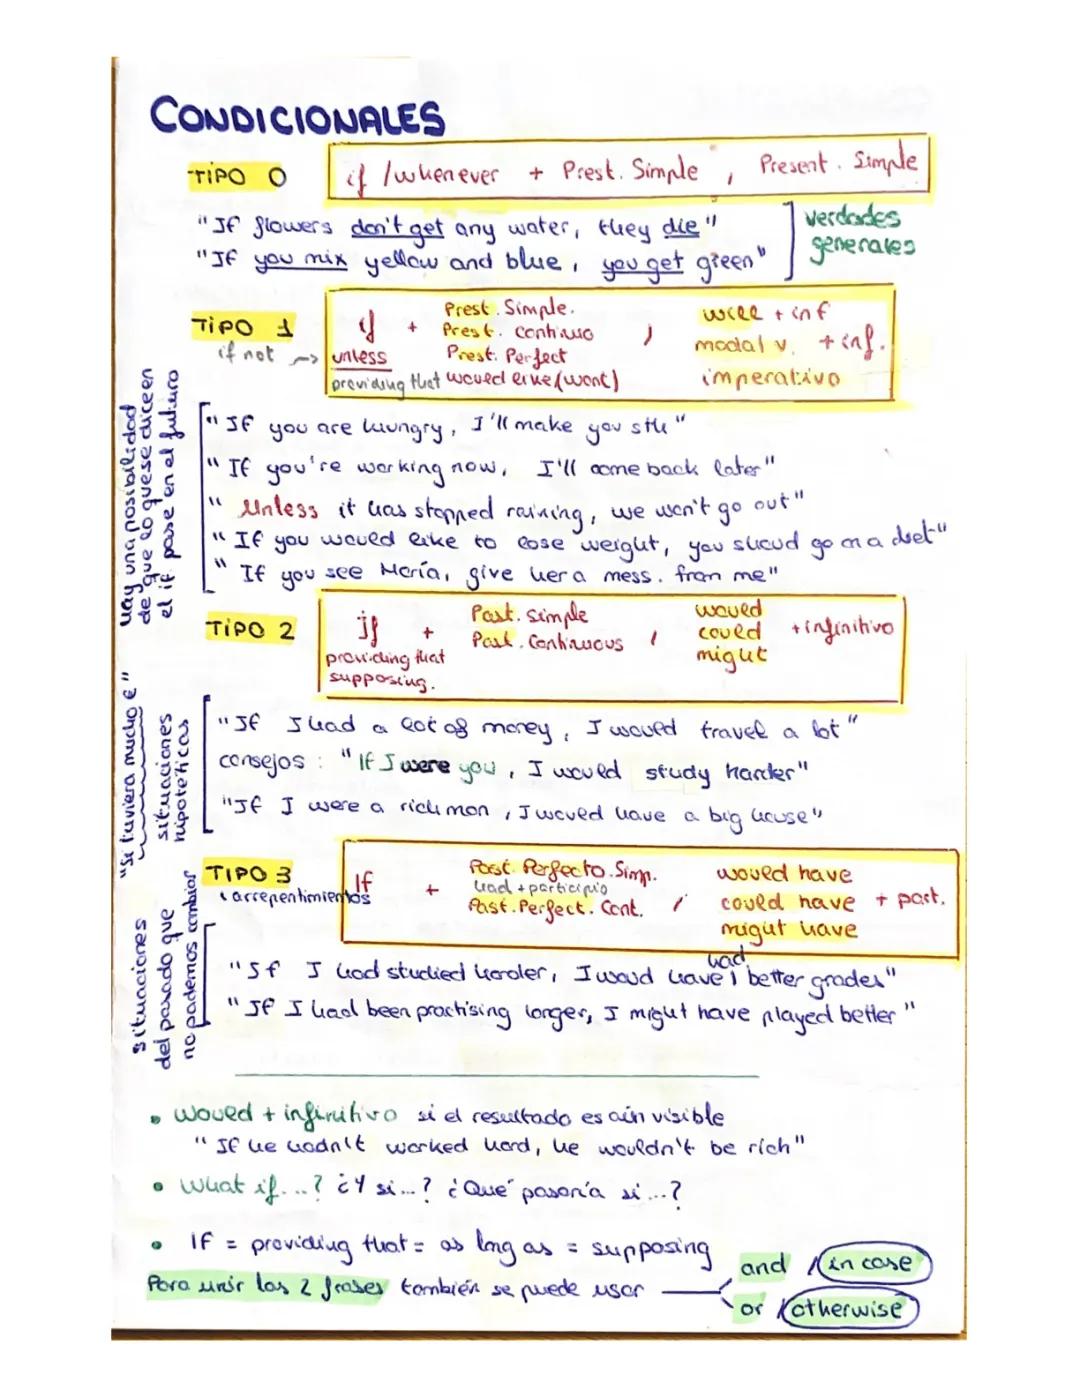 CONDICIONALES
TIPO 0 if / whenever + Prest. Simple , Present. Simple
"If flowers don't get any water, they die"
"If you mix yellow and blue, you get green"
verdades
generales
TIPO 1
if not →
if + unless
providing that
Prest. Simple.
Prest. Continuo
Prest. Perfect
would like (want)
,
will + inf
modal v. + inf.
imperativo
hay una posibilidad
de que lo que se dice en
el if pase en el futuro
"If you are hungry, I'll make you sth"
"If you're working now, I'll come back later"
"Unless it has stopped raining, we won't go out"
"If you would like to lose weight, you shoud go on a diet"
"If you see María, give her a mess. from me"
TIPO 2
if +
providing that
supposing.
Past. Simple
Past. Continuous ,
would
could + infinitivo
might
"Si tuviera mucho €"
situaciones
hipotéticas
"If I had a lot of money, I would travel a lot"
consejos : "If I were you, I would study harder"
"If I were a rich man, I would have a big house"
TIPO 3
arrepentimientos
If +
Past. Perfecto. Simp.
had + participio
Past. Perfect. Cont. ,
would have
could have + part.
might have
situaciones
del pasado que
no podemos cambiar
had
"If I had studied harder, I woud have better grades"
"If I had been practising longer, I might have played better"
• Would + infinitivo si el resultado es aún visible
"If he hadn't worked hard, he wouldn't be rich"
• What if...? ¿Y si...? ¿Qué pasaría si...?
• If = providing that = as long as = supposing
Para unir las 2 frases también se puede usar
and / in case
or / otherwise